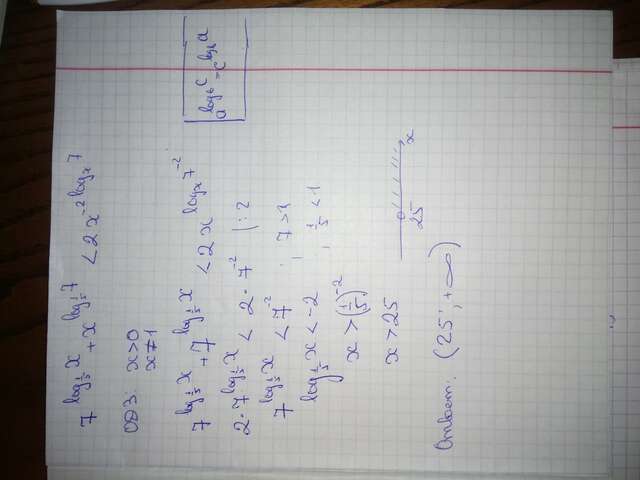 7^{log_{1/5} x} + x^{log_{1/5} 7} < 2x^{-2log_x 7}
ОДЗ: x>0
x≠1
7^{log_{1/5} x} + 7^{log_{1/5} x} < 2x^{log_x 7^{-2}}
a^{log_b c} = c^{log_b a}
2·7^{log_{1/5} x} < 2·7^{-2} |:2
7^{log_{1/5} x} < 7^{-2} ; 7>1
log_{1/5} x < -2 ; 1/5 < 1
x > (1/5)^{-2}
x > 25
25 x
Ответ: (25; +∞)